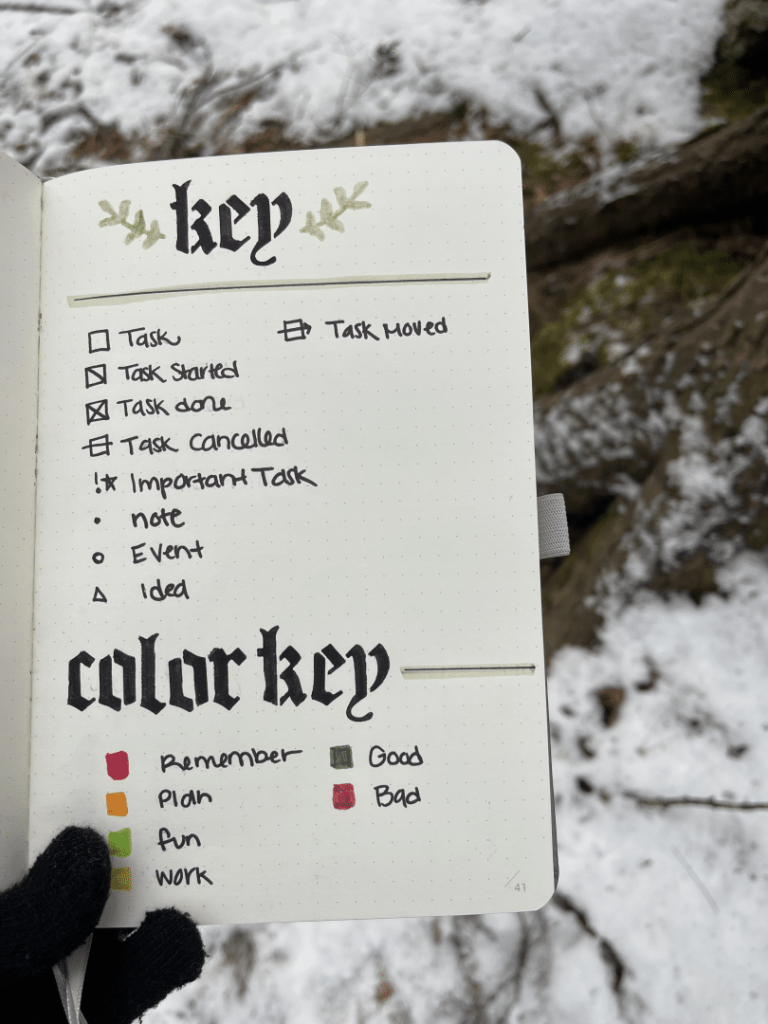 key
Task
Task Moved
Task Started
Task done
Task Cancelled
!☆ Important Task
• note
○ Event
△ Idea
color key
Remember
Good
Plan
Bad
fun
work
41